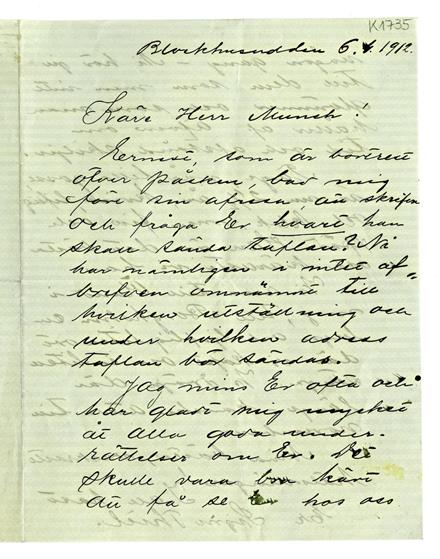 K1735
Blockhusudden 6.4.1912.
Käre Herr Munch!
Ernest, som är bortrest
öfver påsken, bad mig
före sin afresa, att skrifva
och fråga Er hvart han
skall sända taflan? Ni
har nämligen i intet af
brefven omnämnt till
hvilken utställning och
under hvilken adress
taflan bör sändas.
Jag mins Er ofta och
har gladt mig mycket
åt alla goda under-
rättelser om Er. Det
skulle vara bra kärt
att få se Er hos oss